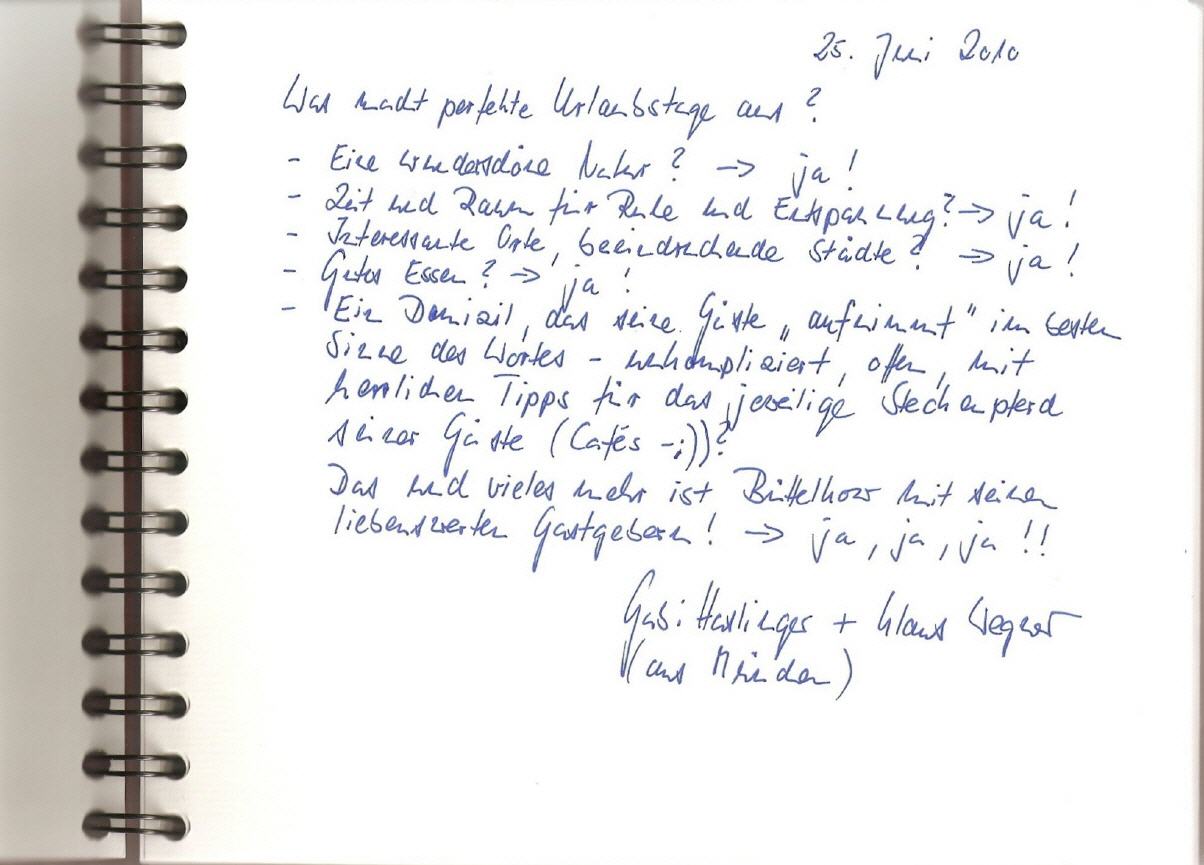 25. Juni 2010
Was macht perfekte Urlaubstage aus?
- Eine wunderschöne Natur? → ja!
- Zeit und Raum für Ruhe und Entspannung? → ja!
- Interessante Orte, beeindruckende Städte? → ja!
- Gutes Essen? → ja!
- Ein Domizil, das seine Gäste „aufnimmt" im besten
Sinne des Wortes - unkompliziert, offen, mit
herrlichen Tipps für das jeweilige Steckenpferd
seiner Gäste (Cafés -;))?
Das und vieles mehr ist mit seinen
liebenswerten Gastgebern! → ja, ja, ja!!
Gabi Haslinger + Klaus Wegner
(aus)